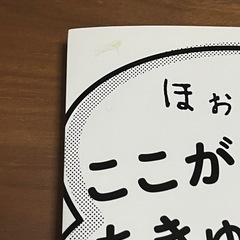 ほぉ
ここが